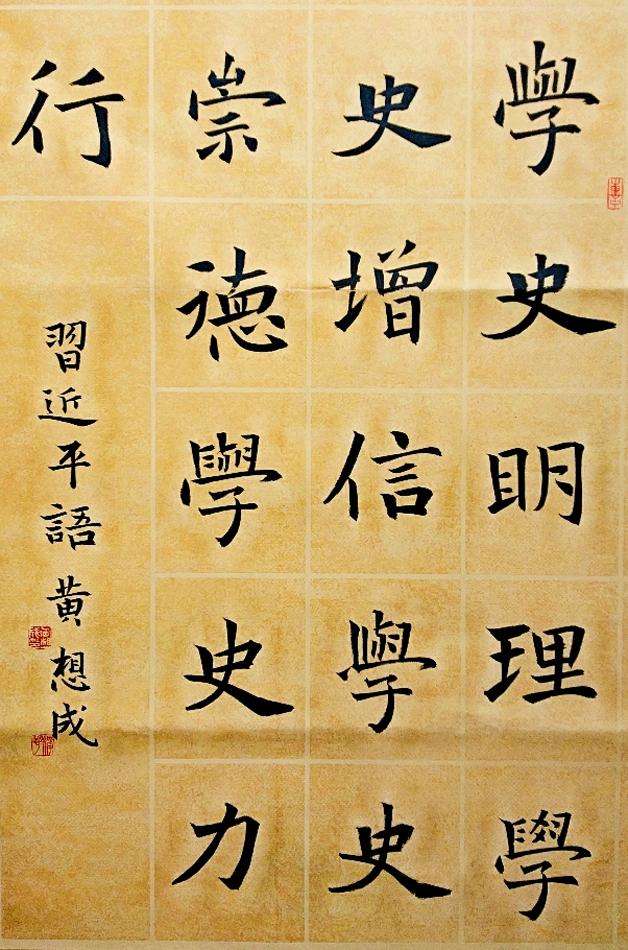 學史明理學
史增信學史
崇德學史力
行
習近平語 黄想成